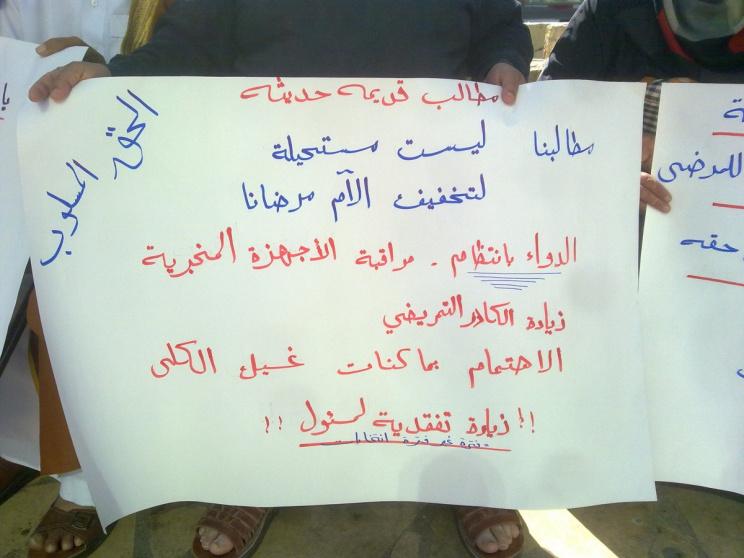 مطالب قديمه حديثه
الحق المسلوب
مطالبنا ليست مستحيلة
لتخفيف الآم مرضانا
الدواء بانتظام . مراقبة الأجهزة المخبرية
زيادة الكادر التمريضي
الاهتمام بماكنات غسيل الكلى
!! زيادة تفقدية لمسئول !!
ة
للمرضى
حقه